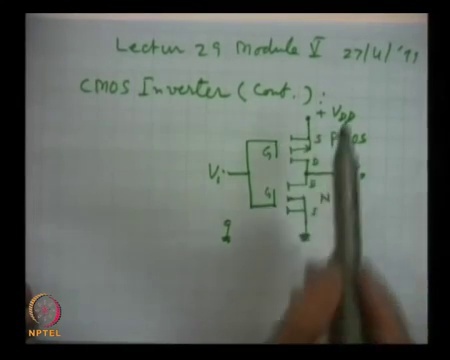 Lectur 29 Module V 27/4/'11
CMOS Inverter (Cont.) :
+ VDD
S
G
D
Vi
D
G
N
S
NPTEL